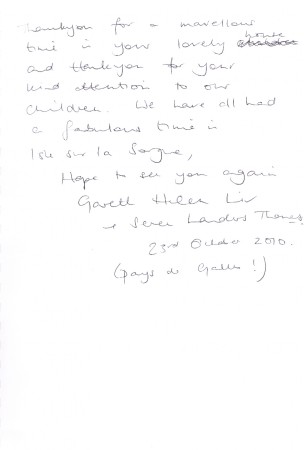 Thankyou for a marvellous
time in your lovely house
and thankyou for your
kind attention to our
children. We have all had
a fabulous time in
Isle sur la Sorgue,
Hope to see you again
Gareth Helen Liv
+ Seren Landers Thomas
23rd October 2010.
(pays de Galles!)